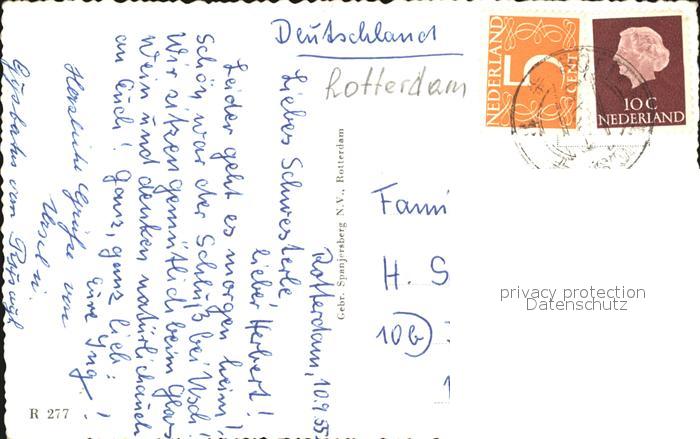 Deutschland
Rotterdam
NEDERLAND
5
CENT
10 C
NEDERLAND
Rotterdam, 10.9.55
Liebes Schwesterle,
lieber Herbert!
Leider geht es morgen heim!
Schön war der Schluß bei Uschi
Wir sitzen gemütlich beim Glas
Wein und denken natürlich auch
an Euch! Ganz, ganz lieb:
Eure Ing
Herzliche Grüße von
Gebr. Spanjersberg N.V., Rotterdam
Fami
H. S
10b
privacy protection
Datenschutz
R 277